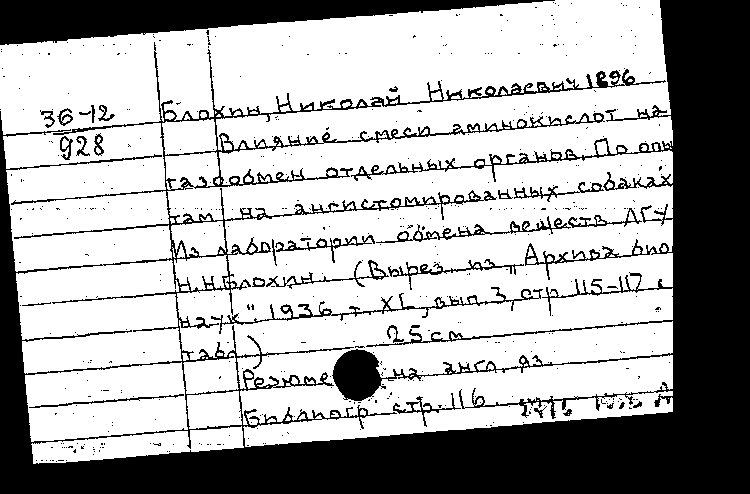 36-12
928
Блохин, Николай Николаевич 1896
Влияние смеси аминокислот на
газообмен отдельных органов. По опы
там на ангистомированных собаках
Из лаборатории обмена веществ ЛГУ
Н.Н.Блохин. (Вырез. из „Архива био
наук". 1936, т. XL, вып. 3, стр. 115-117 с
табл.)
25 см
Резюме на англ. яз.
Библиогр. стр. 116.